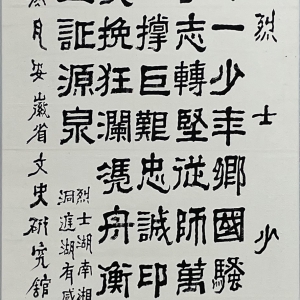 烈士 少
一少年鄉國騷
志轉堅從師萬
撐巨艱忠誠印
挽狂瀾憑舟衡
証源泉
烈士湖南湘
洞庭湖有感
月安徽省文史研究館